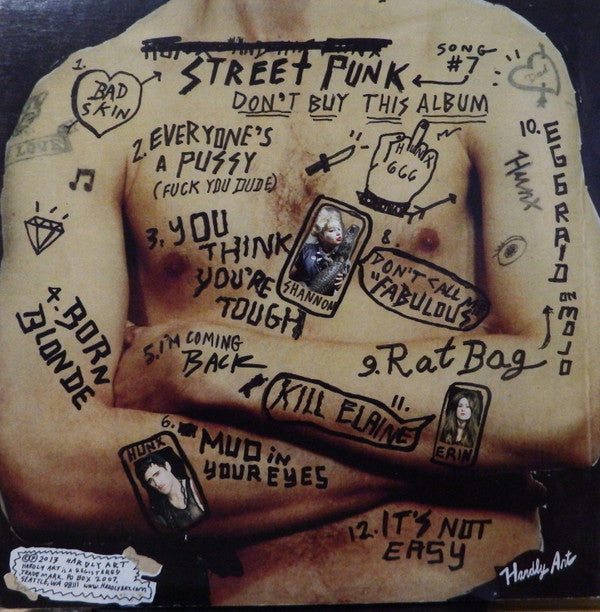 HUNX AND HIS PUNX
STREET PUNK
SONG
#7
DON'T BUY THIS ALBUM
1.
BAD
SKIN
LOVE
2. EVERYONE'S
A PUSSY
(FUCK YOU DUDE)
HUNX
666
10. EGG RAID ON MOJO
Hunx
3. YOU
THINK
YOU'RE
TOUGH
SHANNON
8.
DON'T CALL ME
"FABULOUS"
4. BORN
BLONDE
5. I'M COMING
BACK
9. Rat Bag
11.
KILL ELAINE
ERIN
6. MUD in
YOUR EYES
HUNX
12. IT'S NOT
EASY
©℗ 2013 HARDLY ART
HARDLY ART IS A REGISTERED
TRADE MARK. PO BOX 2007,
SEATTLE, WA 98111 WWW.HARDLYART.COM
Hardly Art